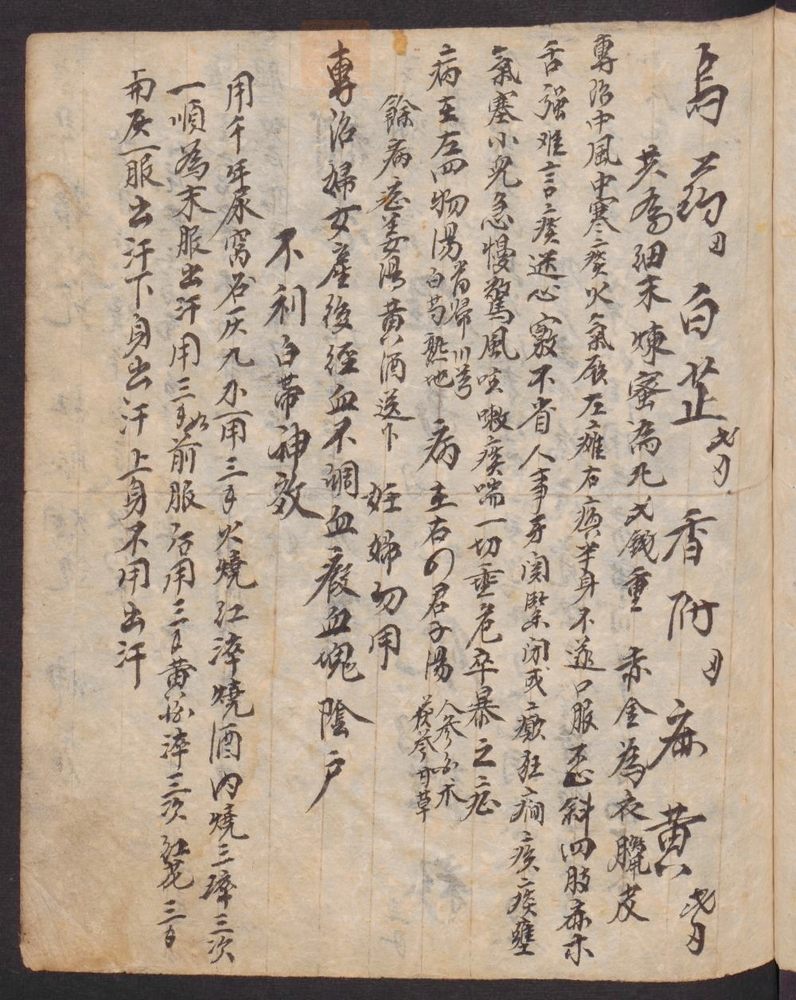 烏药刄白芷弍刄香附刄麻黄弍刄
共為細末煉蜜為丸弍錢重赤金為衣臘皮
專治中風中寒痰火氣厥左癱右瘓半身不遂口眼歪斜四肢麻木
舌强难言痰迷心竅不省人事牙関緊闭或癲狂癇痰痰壅
氣塞小兒急慢驚風咳嗽痰喘一切垂危卒暴之症
病主左四物湯當歸川芎白芍熟地病主右四君子湯人参白朮茯苓甘草
餘病症姜湯黄酒送下妊婦勿用
專治婦女産後經血不調血瘕血塊陰户
不利白帶神效
用千年尿窩谷一斤九小用三火燒红淬燒酒内燒三淬三次
一順為末服出汗用三前服后用三黄淬三次红花三
兩一服出汗下身出汗上身不用出汗